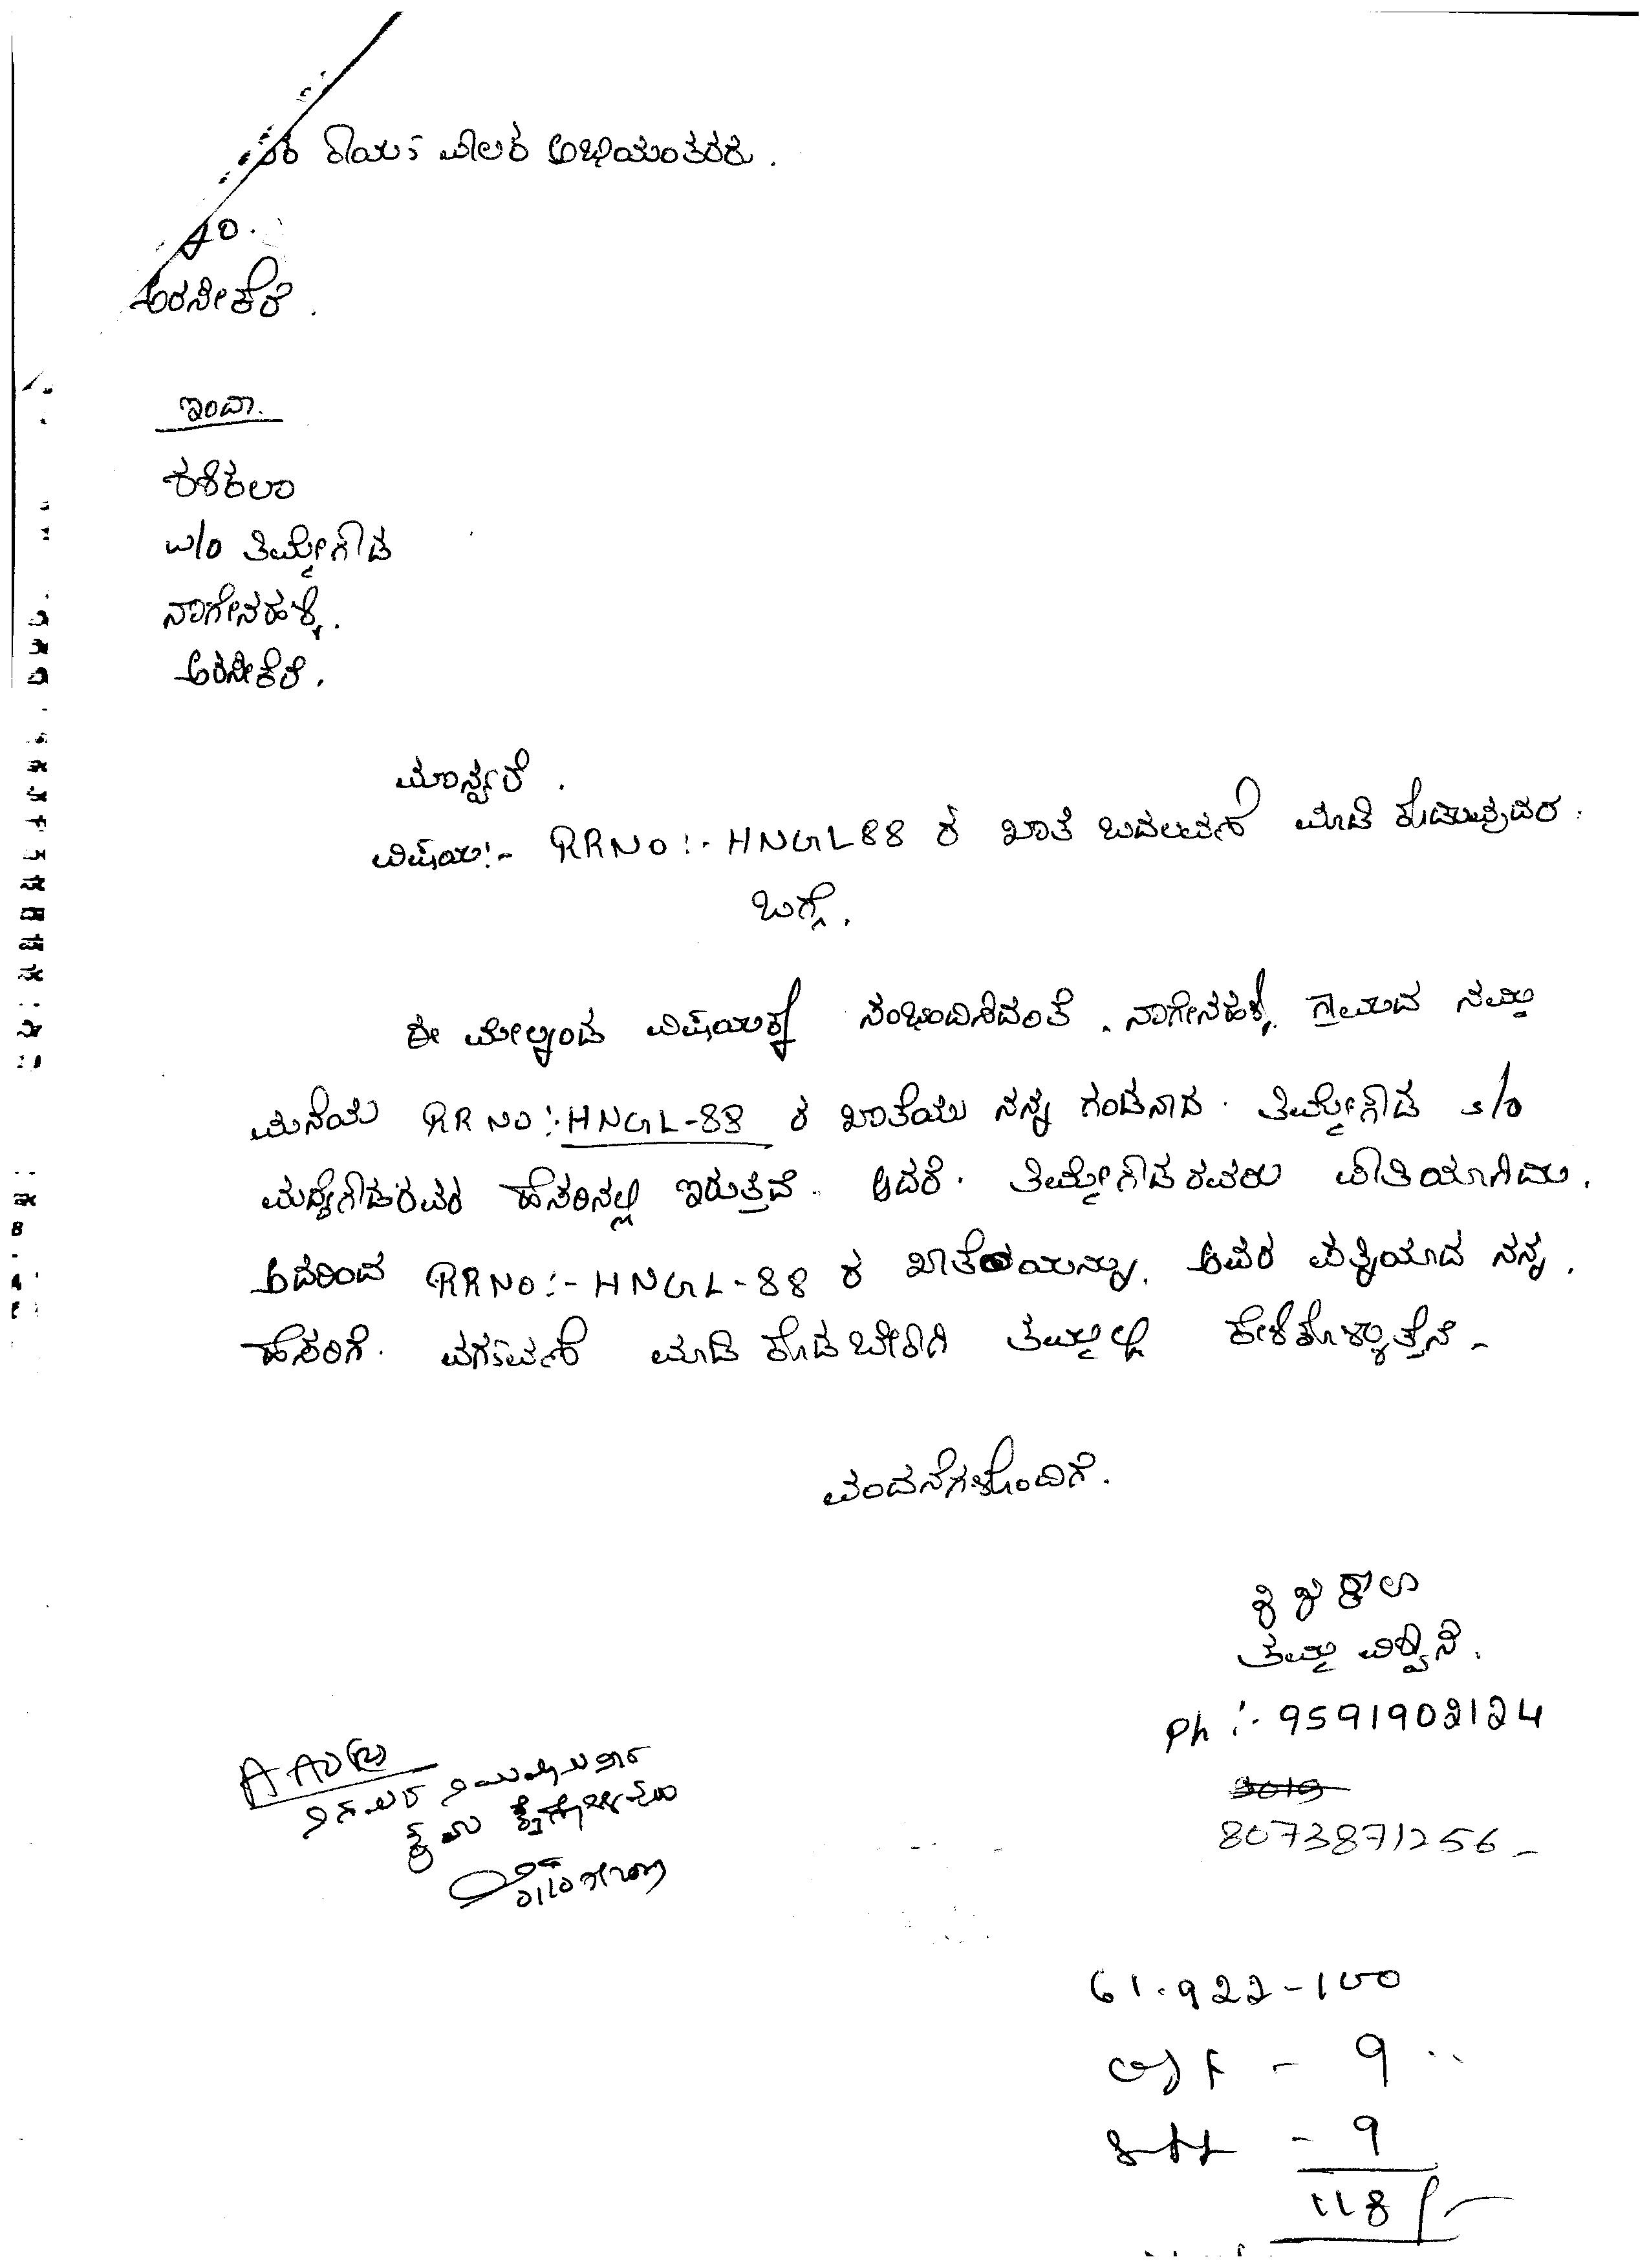 ಕಾರ್ಯಪಾಲಕ ಅಭಿಯಂತರರು.
ಅರಸೀಕೆರೆ.
ಇಂದಾ.
ಶಶಿಕಲಾ
w/o ತಿಮ್ಮೇಗೌಡ
ನಾಗೇನಹಳ್ಳಿ.
ಅರಸೀಕೆರೆ.
ಮಾನ್ಯರೆ.
ವಿಷಯ:- RRNO:- HNGL88 ರ ಖಾತೆ ಬದಲಾವಣೆ ಮಾಡಿ ಕೊಡುವುದರ
ಬಗ್ಗೆ.
ಈ ಮೇಲ್ಕಂಡ ವಿಷಯಕ್ಕೆ ಸಂಬಂದಿಸಿದಂತೆ. ನಾಗೇನಹಳ್ಳಿ ಗ್ರಾಮದ ನಮ್ಮ
ಮನೆಯ RR NO:- HNGL-88 ರ ಖಾತೆಯು ನನ್ನ ಗಂಡನಾದ. ತಿಮ್ಮೇಗೌಡ s/o
ಮದ್ದೇಗೌಡರವರ ಹೆಸರಿನಲ್ಲಿ ಇರುತ್ತದೆ. ಆದರೆ. ತಿಮ್ಮೇಗೌಡರವರು ಪೌತಿಯಾಗಿದು.
ಆದರಿಂದ RRNO:- HNGL-88 ರ ಖಾತೆಯನ್ನು. ಅವರ ಪತ್ನಿಯಾದ ನನ್ನ.
ಹೆಸರಿಗೆ. ವರ್ಗಾವಣೆ ಮಾಡಿ ಕೊಡಬೇಕಾಗಿ ತಮ್ಮಲ್ಲಿ ಕೇಳಿಕೊಳ್ಳುತ್ತೆನೆ-
ವಂದನೆಗಳೊಂದಿಗೆ.
ಶಶಿಕಲಾ
ತಮ್ಮ ವಿಶ್ವಾಸಿ.
Ph:- 9591902124
8073871256-
61.922-100
- 9
- 9
118/-